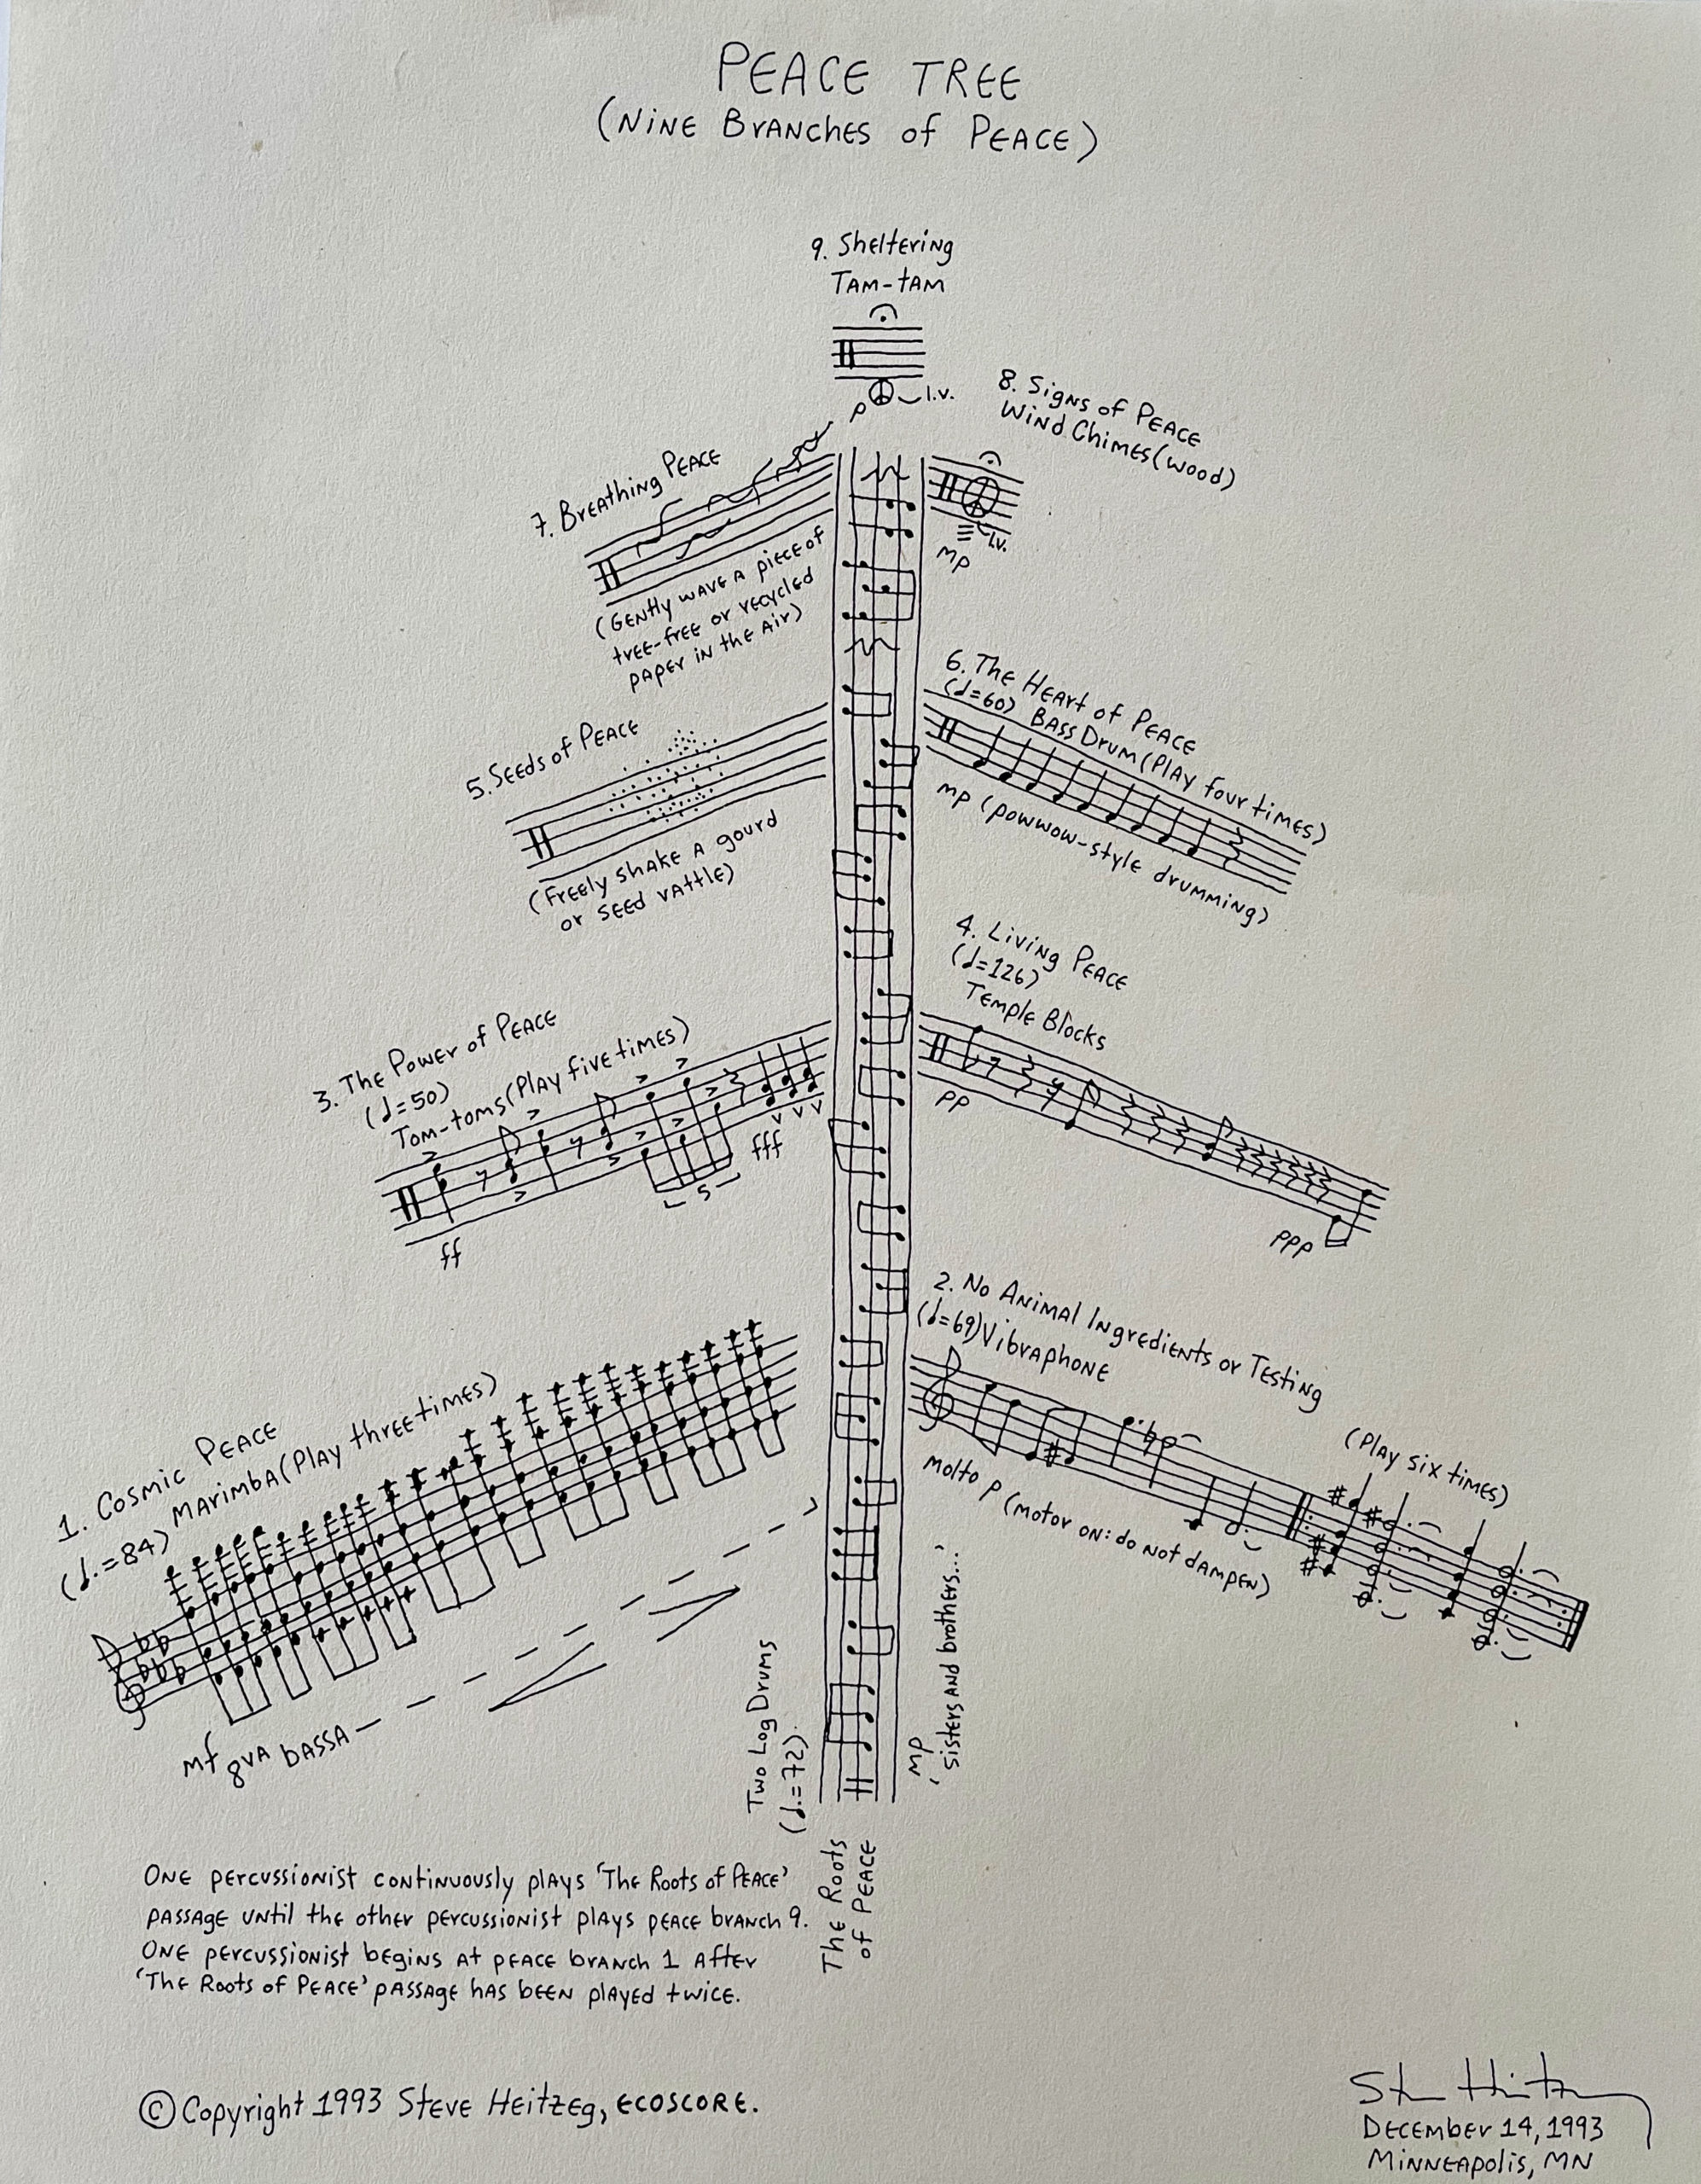 PEACE TREE
(NINE BRANCHES of PEACE)
9. Sheltering
TAM-tAM
p
l.v.
8. Signs of PEACE
Wind Chimes (wood)
l.v.
mp
7. Breathing PEACE
(Gently wave a piece of
tree-free or recycled
paper in the air)
6. The Heart of Peace
(♩=60) Bass Drum (Play four times)
mp (powwow-style drumming)
5. Seeds of Peace
(Freely shake a gourd
or seed rattle)
4. Living Peace
(♩=126)
Temple Blocks
pp
ppp
3. The Power of Peace
(♩=50)
Tom-toms (Play five times)
ff
5
fff
2. No Animal Ingredients or Testing
(♩=69) Vibraphone
(Play six times)
molto p (motor on: do not dampen)
1. Cosmic Peace
(♩.=84) Marimba (Play three times)
mf 8va bassa
Two Log Drums
(♩.=72)
mp
'sisters and brothers...'
The Roots
of Peace
One percussionist continuously plays 'The Roots of Peace'
passage until the other percussionist plays peace branch 9.
One percussionist begins at peace branch 1 after
'The Roots of Peace' passage has been played twice.
© Copyright 1993 Steve Heitzeg, ECOSCORE.
December 14, 1993
Minneapolis, MN